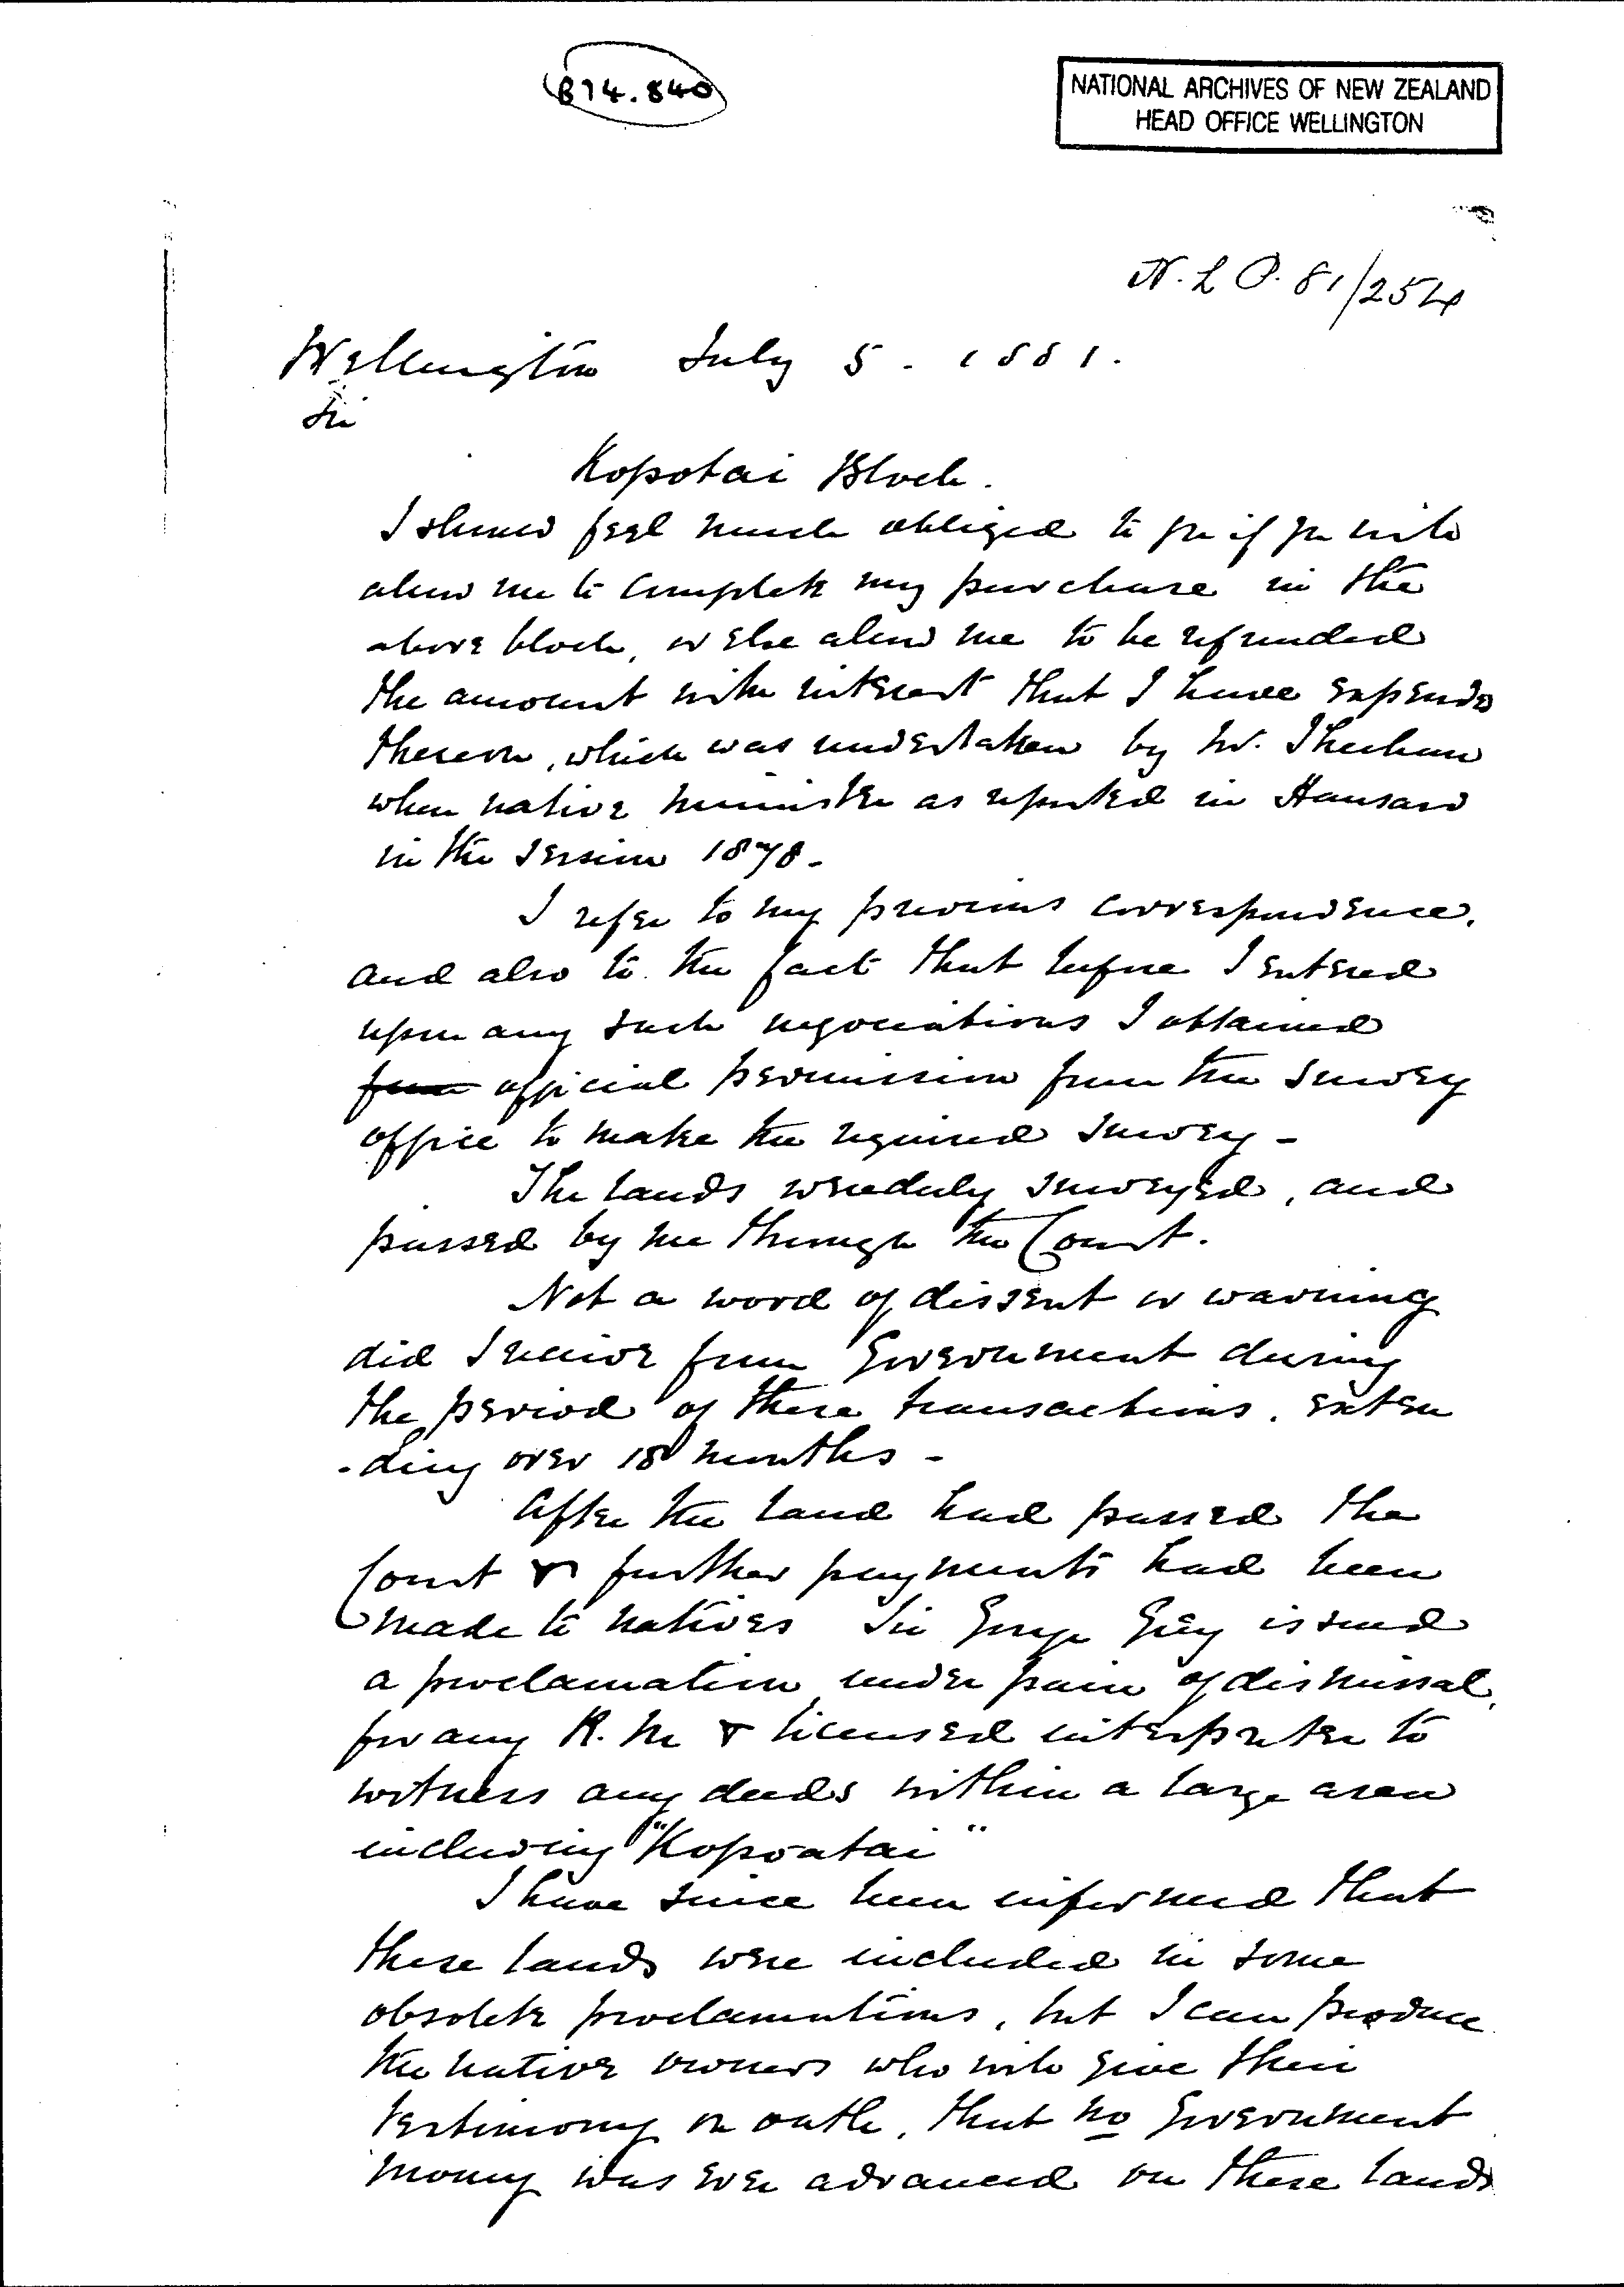 B74.840
NATIONAL ARCHIVES OF NEW ZEALAND
HEAD OFFICE WELLINGTON
N.L.P. 81/254
Wellington July 5. 1881.
Sir
Kopotai Block.
I should feel much obliged to you if you will
allow me to complete my purchase in the
above block, or else allow me to be refunded
the amount with interest that I have expended
thereon, which was undertaken by Mr. Sheehan
when native minister as reported in Hansard
in the session 1878 -
I refer to my previous correspondence,
and also to the fact that before I entered
upon any such negociations I obtained
from official permission from the Survey
office to make the required survey -
The lands were duly surveyed, and
passed by me through the Court.
Not a word of dissent or warning
did I receive from Government during
the period of these transactions, exten
-ding over 18 months -
After the land had passed the
Court & further payments had been
made to natives Sir George Grey issued
a proclamation under pain of dismissal,
for any R. M & licensed interpreter to
witness any deeds within a large area
including "Kopoatai"
I have since been informed that
these lands were included in some
obsolete proclamations, but I can produce
the native owners who will give their
testimony on oath, that no Government
money was ever advanced on these lands